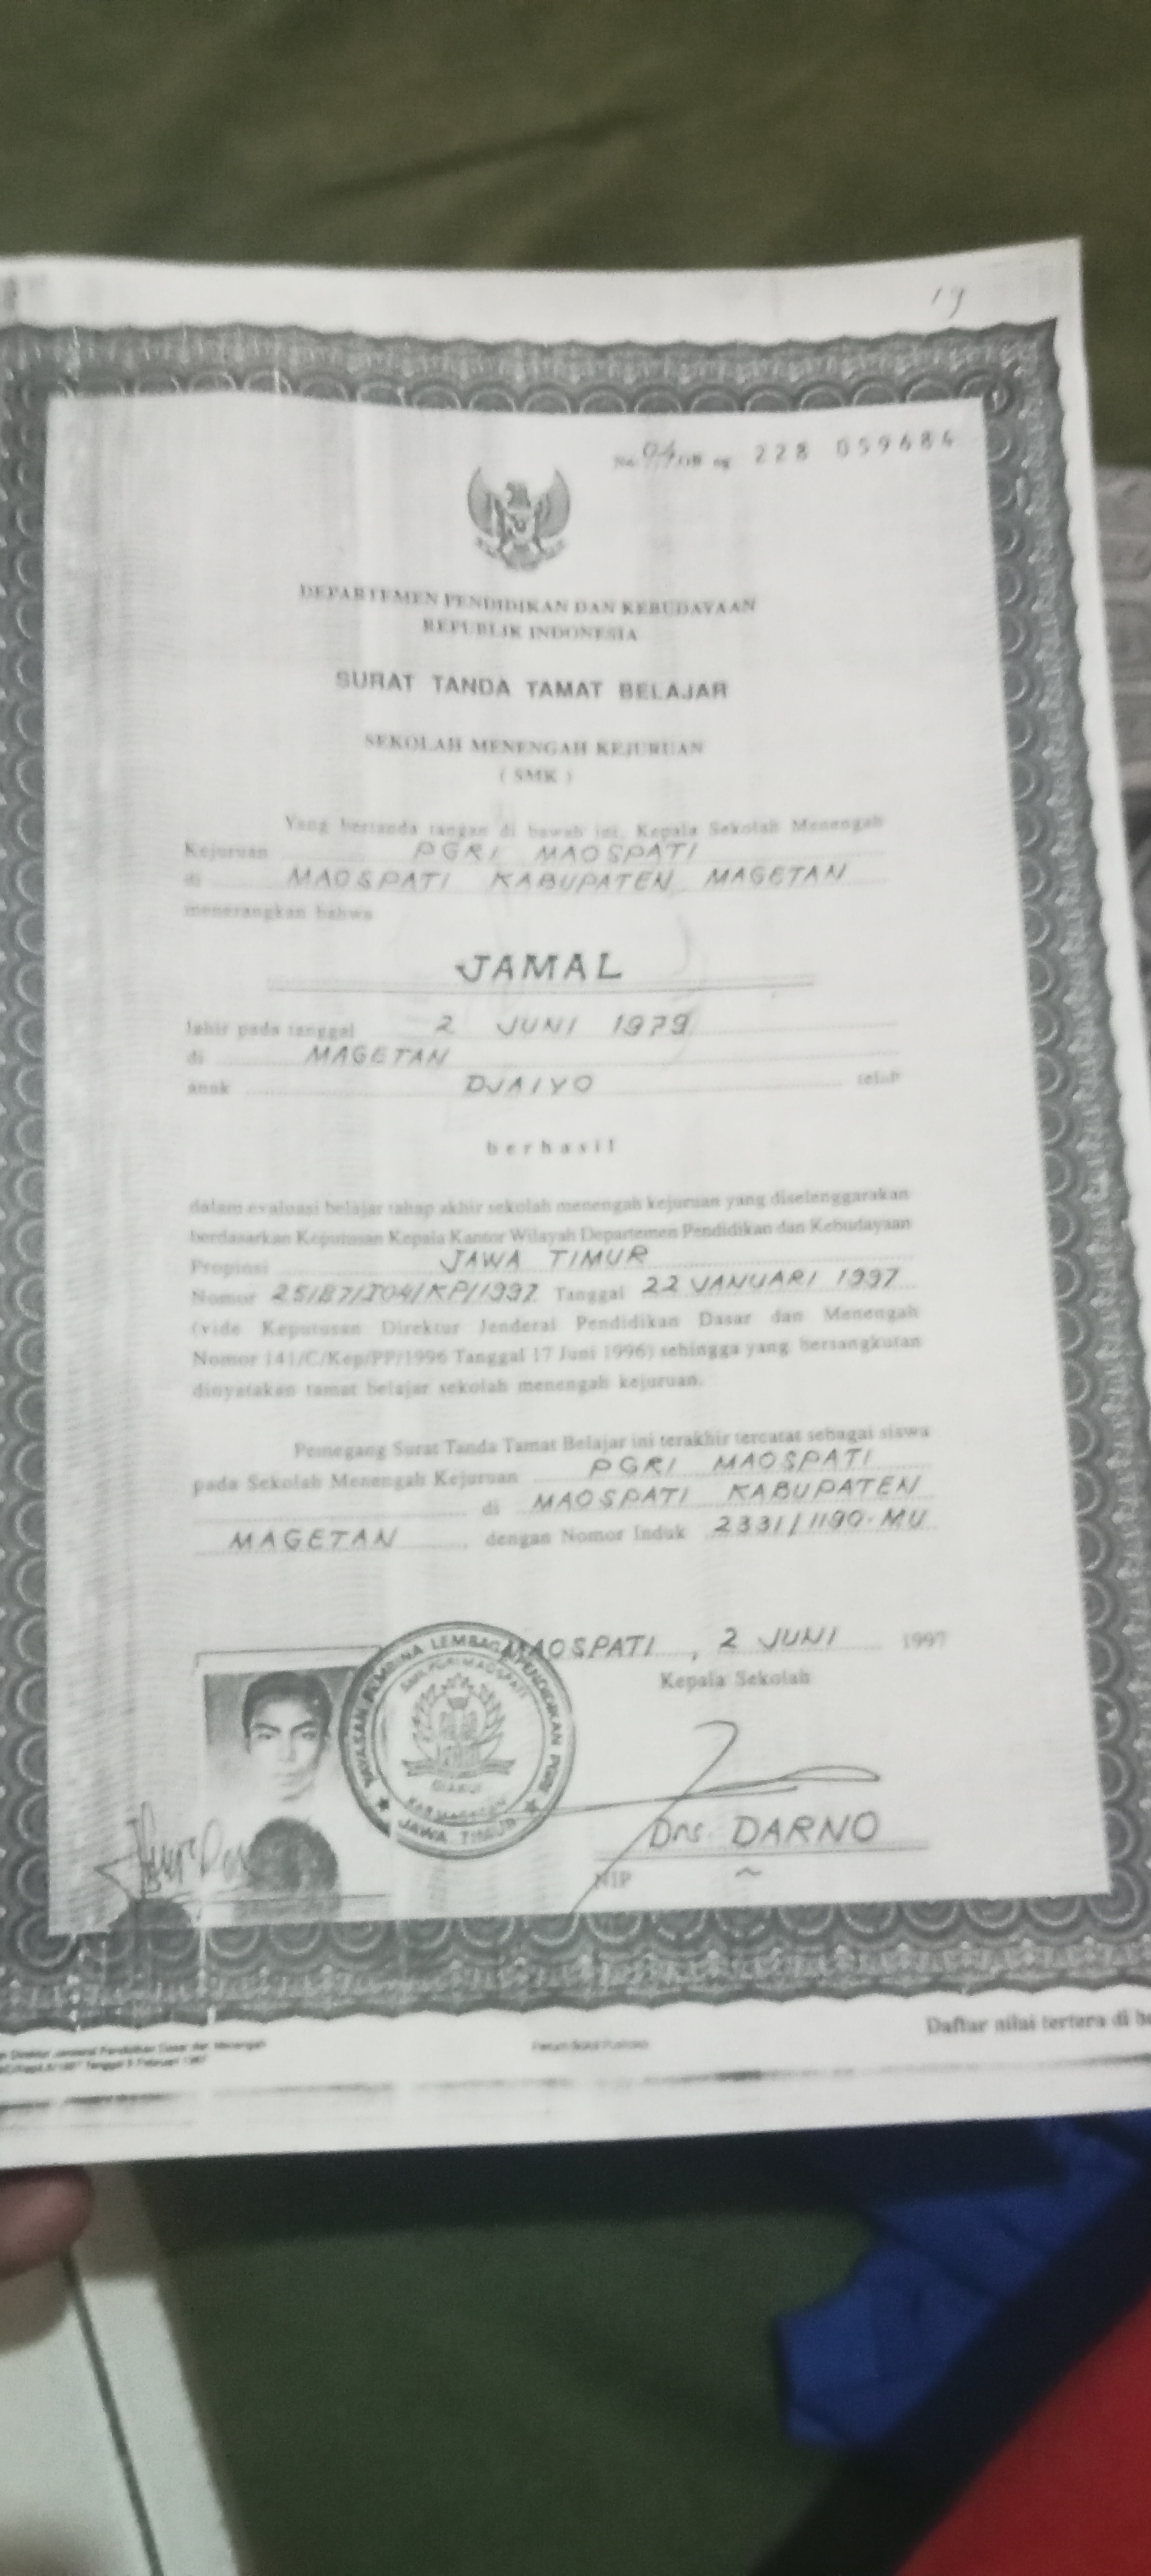 19
No. 04 OB og 228 059684
DEPARTEMEN PENDIDIKAN DAN KEBUDAYAAN
REPUBLIK INDONESIA
SURAT TANDA TAMAT BELAJAR
SEKOLAH MENENGAH KEJURUAN
( SMK )
Yang bertanda tangan di bawah ini, Kepala Sekolah Menengah
Kejuruan PGRI MAOSPATI
di MAOSPATI KABUPATEN MAGETAN
menerangkan bahwa
JAMAL
lahir pada tanggal 2 JUNI 1979
di MAGETAN
anak DJAIYO telah
berhasil
dalam evaluasi belajar tahap akhir sekolah menengah kejuruan yang diselenggarakan
berdasarkan Keputusan Kepala Kantor Wilayah Departemen Pendidikan dan Kebudayaan
Propinsi JAWA TIMUR
Nomor 25/B7/I04/KP/1997 Tanggal 22 JANUARI 1997
(vide Keputusan Direktur Jenderal Pendidikan Dasar dan Menengah
Nomor 141/C/Kep/PP/1996 Tanggal 17 Juni 1996) sehingga yang bersangkutan
dinyatakan tamat belajar sekolah menengah kejuruan.
Pemegang Surat Tanda Tamat Belajar ini terakhir tercatat sebagai siswa
pada Sekolah Menengah Kejuruan PGRI MAOSPATI
di MAOSPATI KABUPATEN
MAGETAN, dengan Nomor Induk 2331/1190-MU
MAOSPATI, 2 JUNI 1997
Kepala Sekolah
YAYASAN PEMBINA LEMBAGA PENDIDIKAN PGRI
SMK PGRI MAOSPATI
KAB MAGETAN
JAWA TIMUR
Drs. DARNO
NIP ~
Daftar nilai tertera di
Direktur Jenderal Pendidikan Dasar dan Menengah